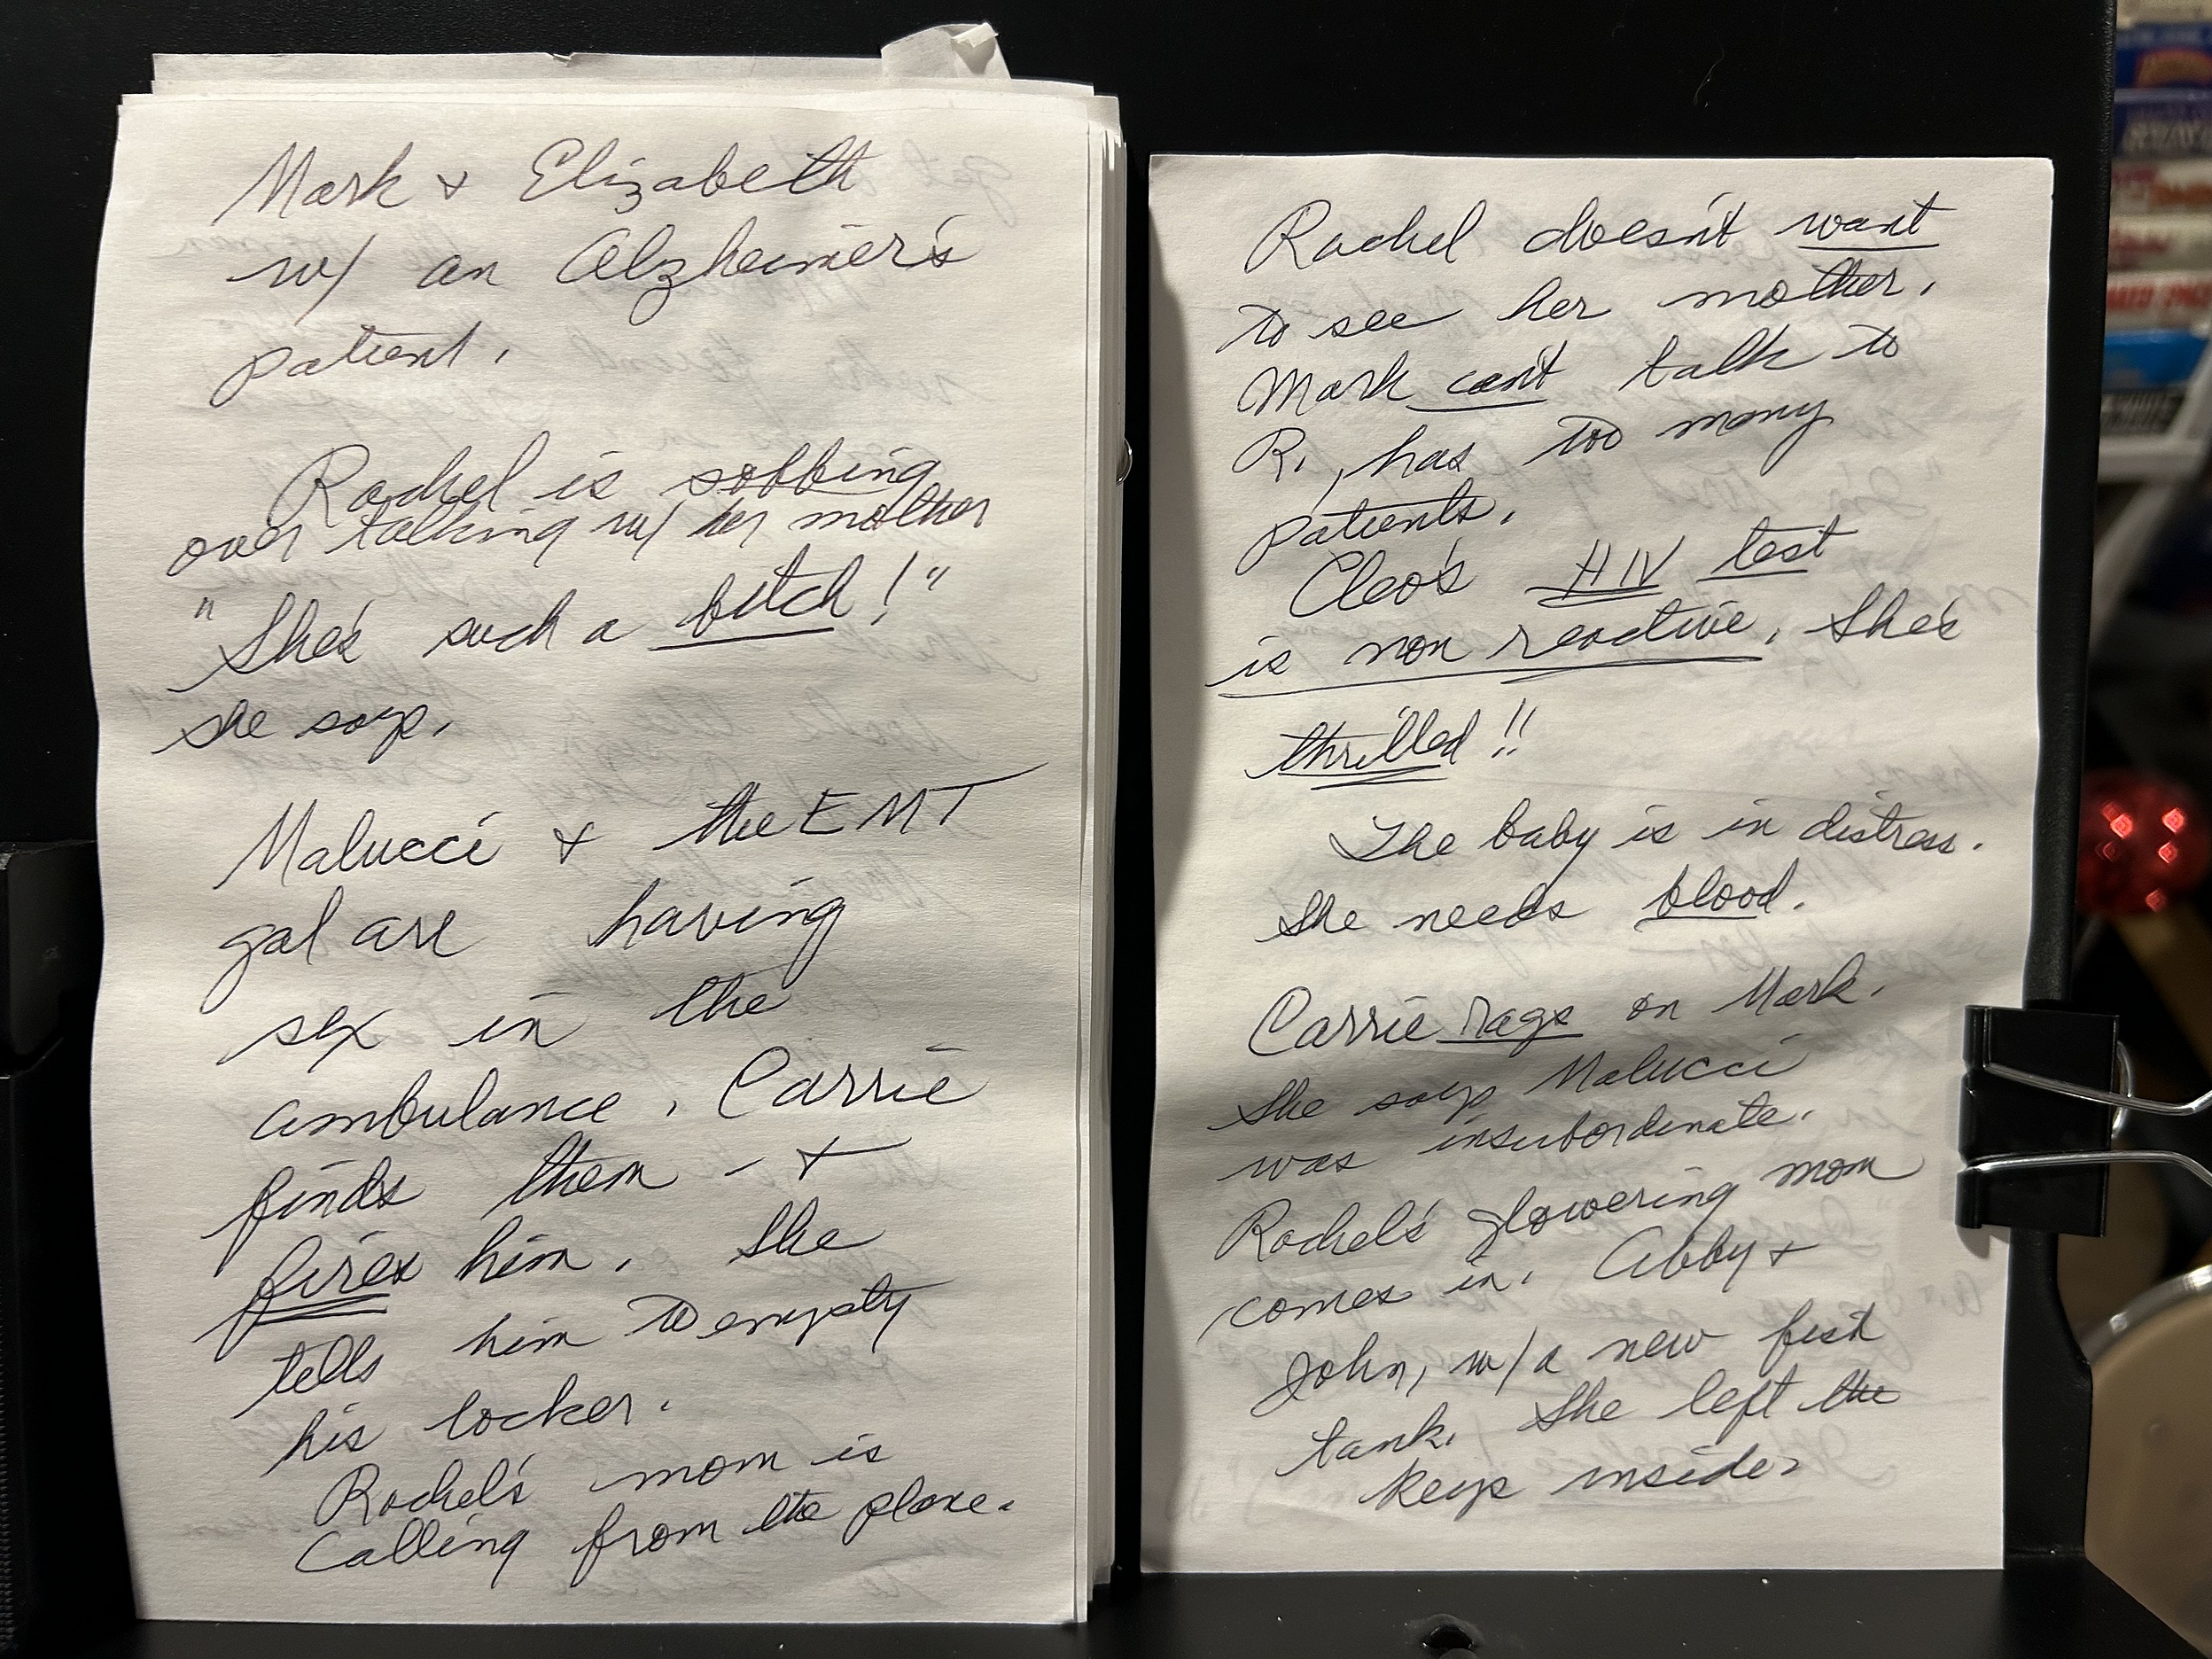 Mark & Elizabeth
w/ an Alzheimer's
patient.
Rachel is sobbing
over talking w/ her mother
"She's such a bitch!"
she says.
Malucci & the EMT
gal are having
sex in the
ambulance. Carrie
finds them - &
fires him. She
tells him to empty
his locker.
Rachel's mom is
calling from the plane.
Rachel doesn't want
to see her mother.
Mark can't talk to
R., has too many
patients.
Cleo's HIV test
is non reactive. She's
thrilled!!
The baby is in distress.
She needs blood.
Carrie rags on Mark.
She says Malucci
was insubordinate.
Rachel's glowering mom
comes in. Abby &
John, w/a new fish
tank. She left the
keys inside.